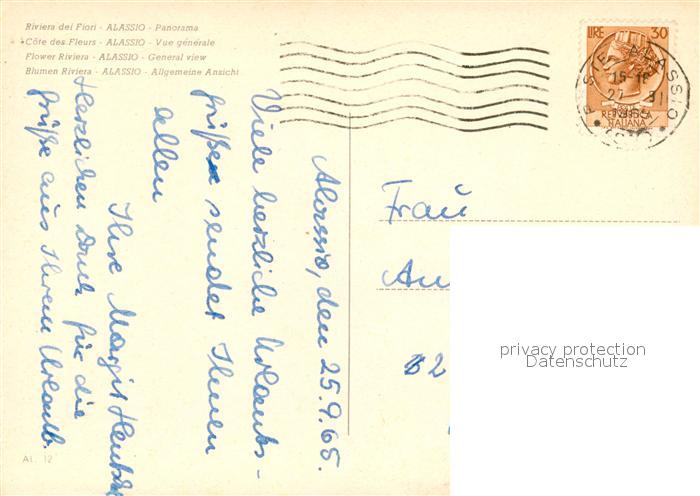 Riviera dei Fiori - ALASSIO - Panorama
Côte des Fleurs - ALASSIO - Vue générale
Flower Riviera - ALASSIO - General view
Blumen Riviera - ALASSIO - Allgemeine Ansicht
LIRE 30
ALASSIO
REPUBBLICA
ITALIANA
Alassio, den 25.9.65.
Viele herzliche Urlaubs-
grüße sendet Ihnen
allen
Ihre Margit
Herzlichen Dank für die
Grüße aus Ihrem Urlaub.
Frau
privacy protection
Datenschutz
AL. 12